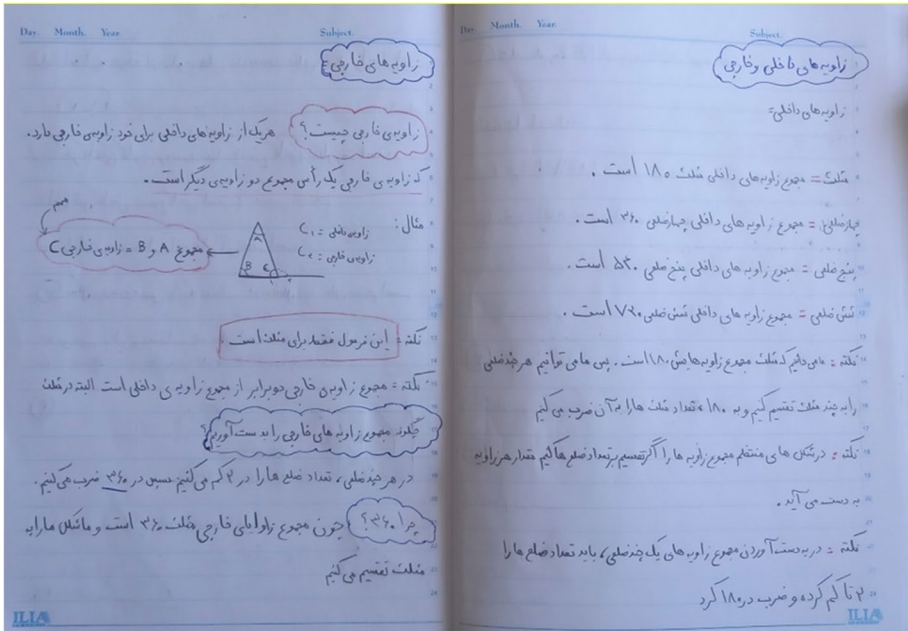 Day. Month. Year. Subject.
زاویه های داخلی و خارجی
زاویه های داخلی:
مثلث = مجموع زاویه های داخلی مثلث ۱۸۰ است.
چهارضلعی = مجموع زاویه های داخلی چهارضلعی ۳۶۰ است.
پنج ضلعی = مجموع زاویه های داخلی پنج ضلعی ۵۴۰ است.
شش ضلعی = مجموع زاویه های داخلی شش ضلعی ۷۲۰ است.
نکته = ما می دانیم که مثلث مجموع زاویه هایش ۱۸۰ است. پس ما می توانیم هر چند ضلعی
را به چند مثلث تقسیم کنیم و به ۱۸۰، تعداد مثلث ها را به آن ضرب می کنیم
نکته = در شکل های منتظم مجموع زاویه ها را اگر تقسیم بر تعداد ضلع ها کنیم مقدار هر زاویه
به دست می آید.
نکته = در به دست آوردن مجموع زاویه های یک چند ضلعی، باید تعداد ضلع ها را
۲ تا کم کرده و ضرب در ۱۸۰ کرد
ILIA
Day. Month. Year. Subject.
زاویه های خارجی:
زاویه ی خارجی چیست؟ هریک از زاویه های داخلی برای خود زاویه ی خارجی دارد.
که زاویه ی خارجی یک رأس مجموع دو زاویه ی دیگر است.
مثال:
C۱ = زاویه داخلی
C۲ = زاویه ی خارجی
A
B C
مجموع A و B = زاویه ی خارجی C
مهم
نکته = این فرمول فقط برای مثلث است
نکته = مجموع زاویه ی خارجی دو برابر از مجموع زاویه ی داخلی است البته در مثلث
چگونه مجموع زاویه های خارجی را به دست آوریم؟
در هر چند ضلعی، تعداد ضلع ها را در ۲ کم می کنیم سپس در ۳۶۰ ضرب می کنیم.
چرا ۳۶۰؟ چون مجموع زاوایای خارجی مثلث ۳۶۰ است و ما شکل ها را به
مثلث تقسیم می کنیم
ILIA